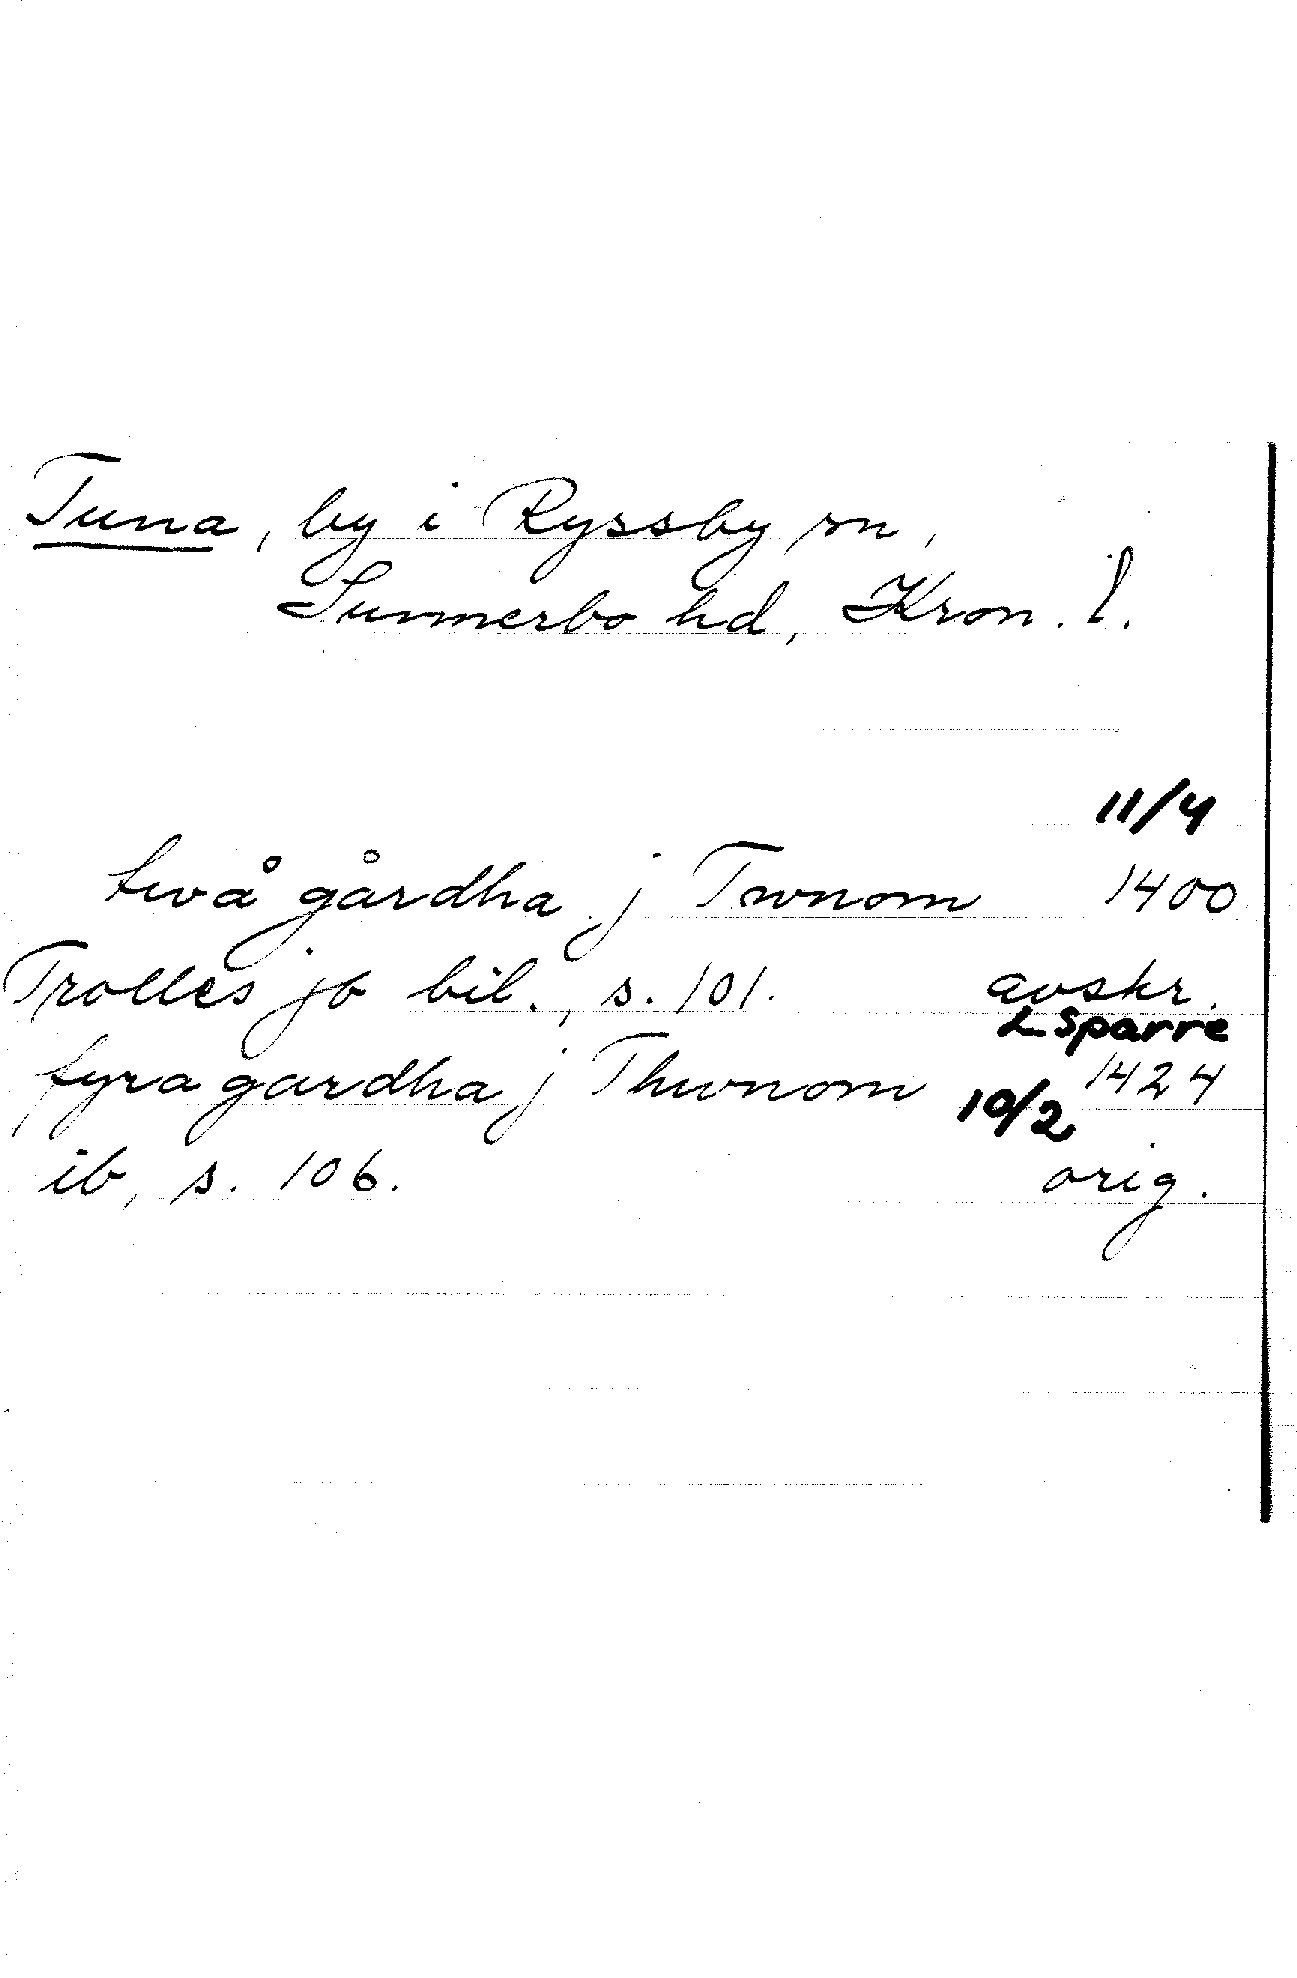 Tuna, by i Ryssby sn,
Sunnerbo hd, Kron. l.
11/4
twå gårdha j Twnom 1400
Trolles jb bil., s. 101. avskr.
L Sparre
fyra gardha j Thwnom 10/2 1424
ib, s. 106. orig.